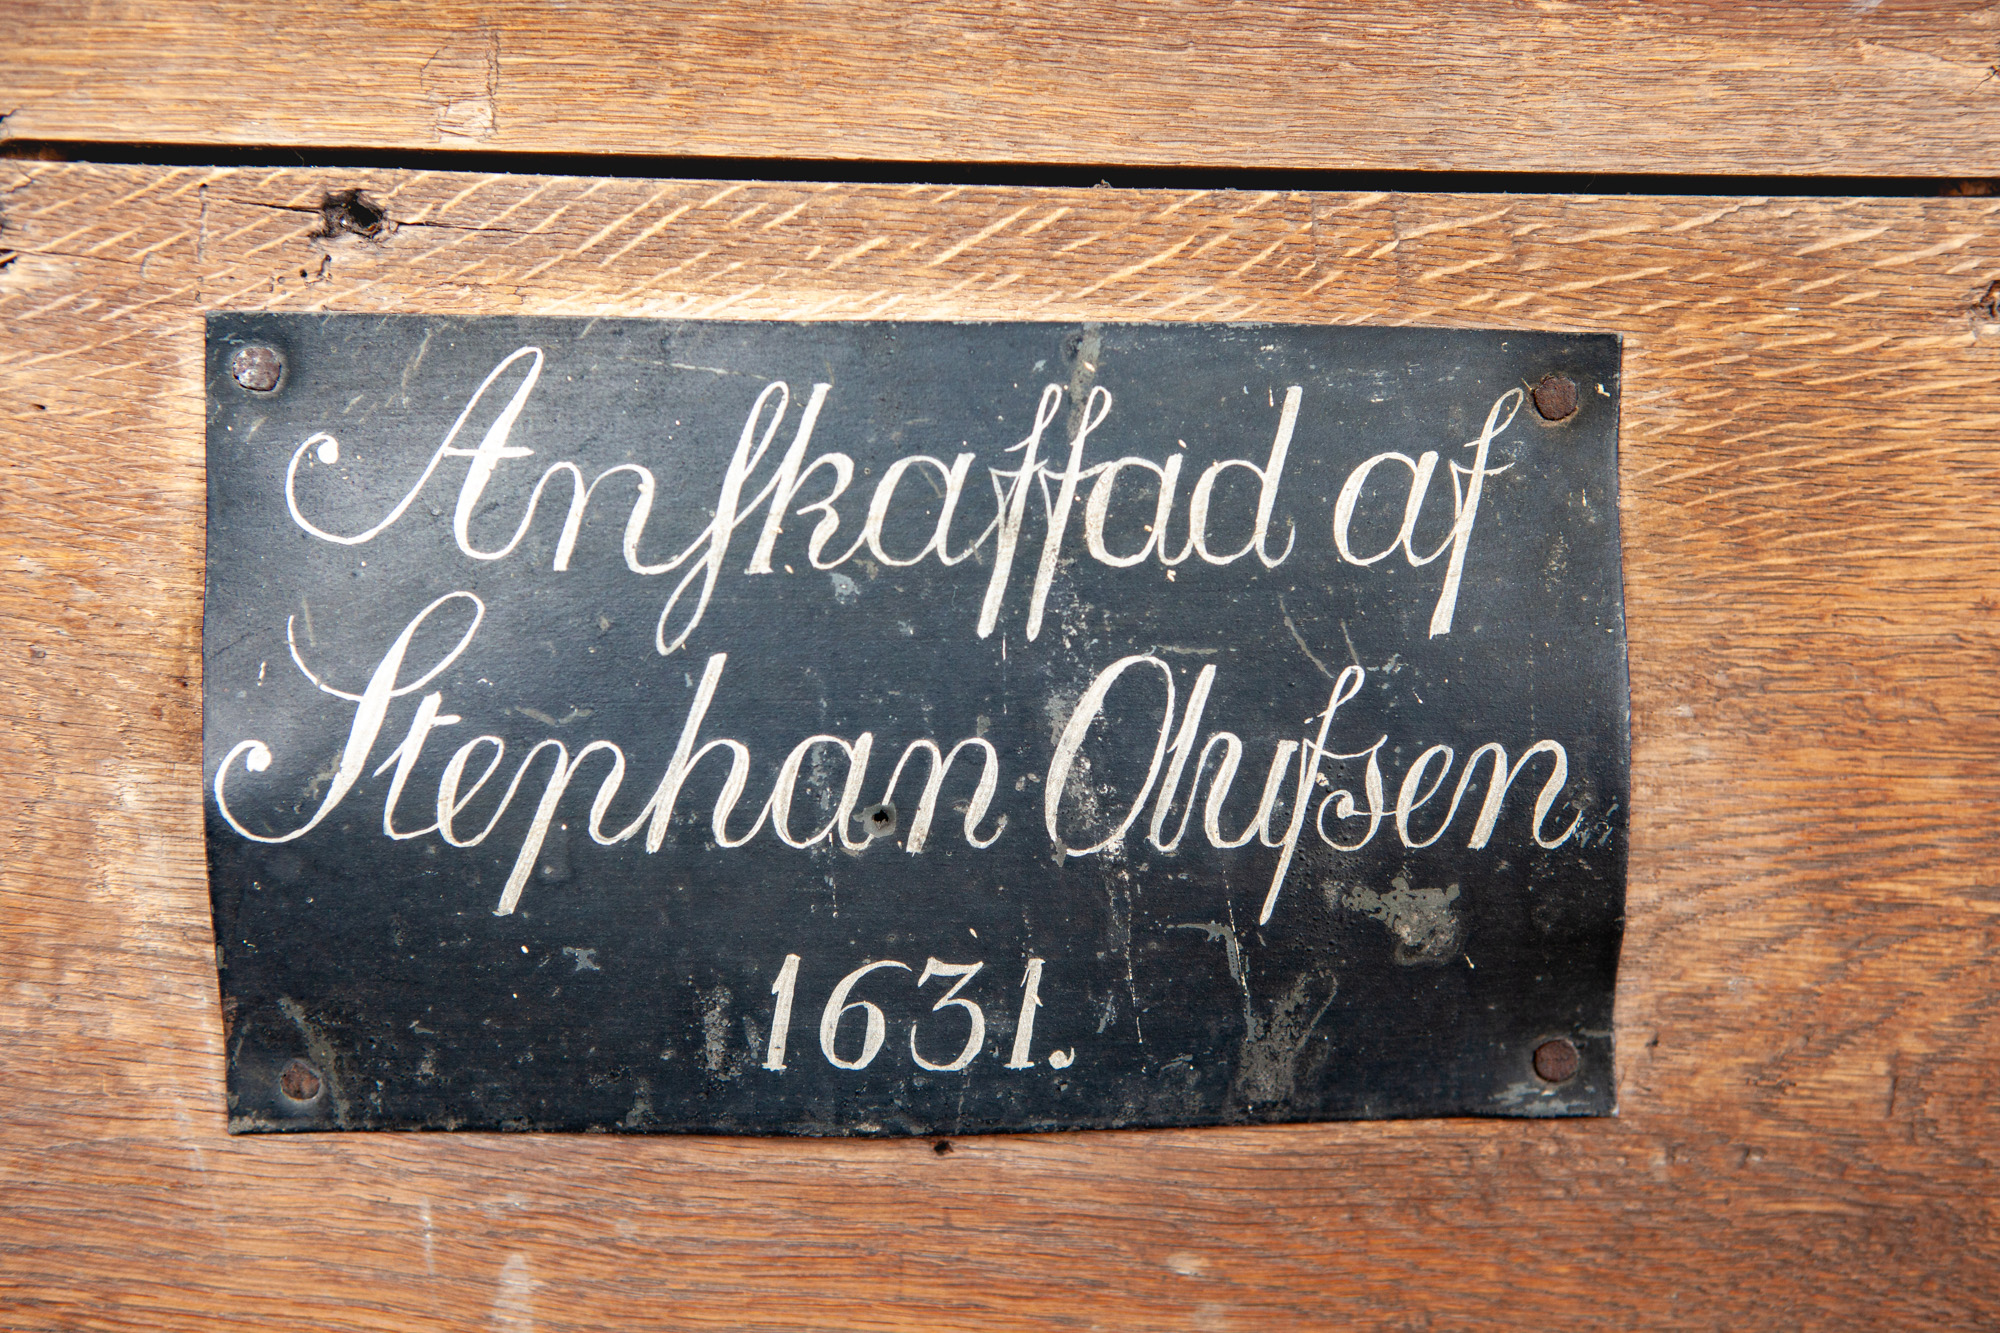 Anſkaffad af
Stephan Olufsen
1631.